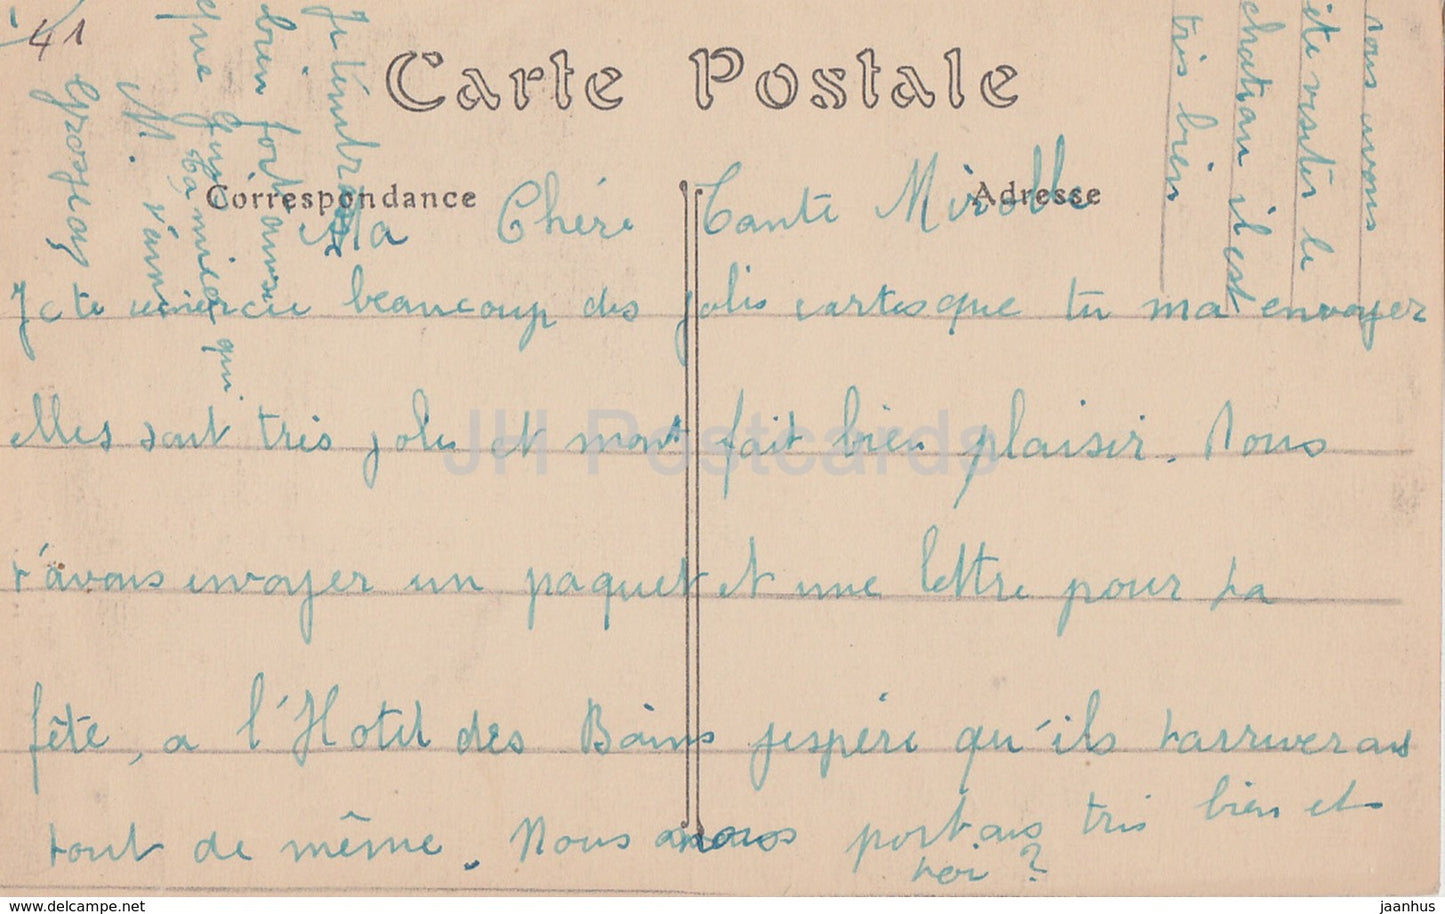 41
Carte Postale
Correspondance
Adresse
Ma Chére Tante Mirolle
Je te remercie beaucoup des jolis cartes que tu ma envoyer
elles sont tres jolie et mont fait bien plaisir. Nous
t'avons envoyer un paquet et une lettre pour ta
fête, a l'Hotel des Bains jespére qu'ils tarriverons
tout de même. Nous nous portons tres bien et
toi ?
nous avons
été visiter le
chateau il est
tres bien
Je t'embrasse
bien fort ainsi
que
Ta nièce qui
t'aime
M. Grosjean
JH Postcards
www.delcampe.net
jaanhus